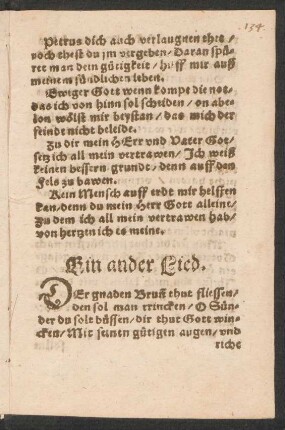 154
Petrus dich auch verlaugnen thet/
noch thest du jm vergeben/ Daran spü-
ret man dein gütigkeit/ hilff mir auß
meinem sündlichen leben.
Ewiger Gott wenn kompt die not-
das ich von hinn sol scheiden/ on abe-
lon wölst mir beystan/ das mich der
feinde nicht beleide.
Zu dir mein HErr vnd Vater Got-
setz ich all mein vertrawen/ Ich weiß
keinen bessern grunde/ denn auff den
Fels zu bawen.
Kein Mensch auff erdt mir helffen
kan/ denn du mein Herr Gott alleine/
Zu dem ich all mein vertrawen hab/
von hertzen ich es meine.
Ein ander Lied.
DEr gnaden Brunn thut fliessen/
den sol man trincken/ O Sün-
der du solt büssen/ dir thut Gott win-
cken/ Mit seinen gütigen augen/ vnd
richt